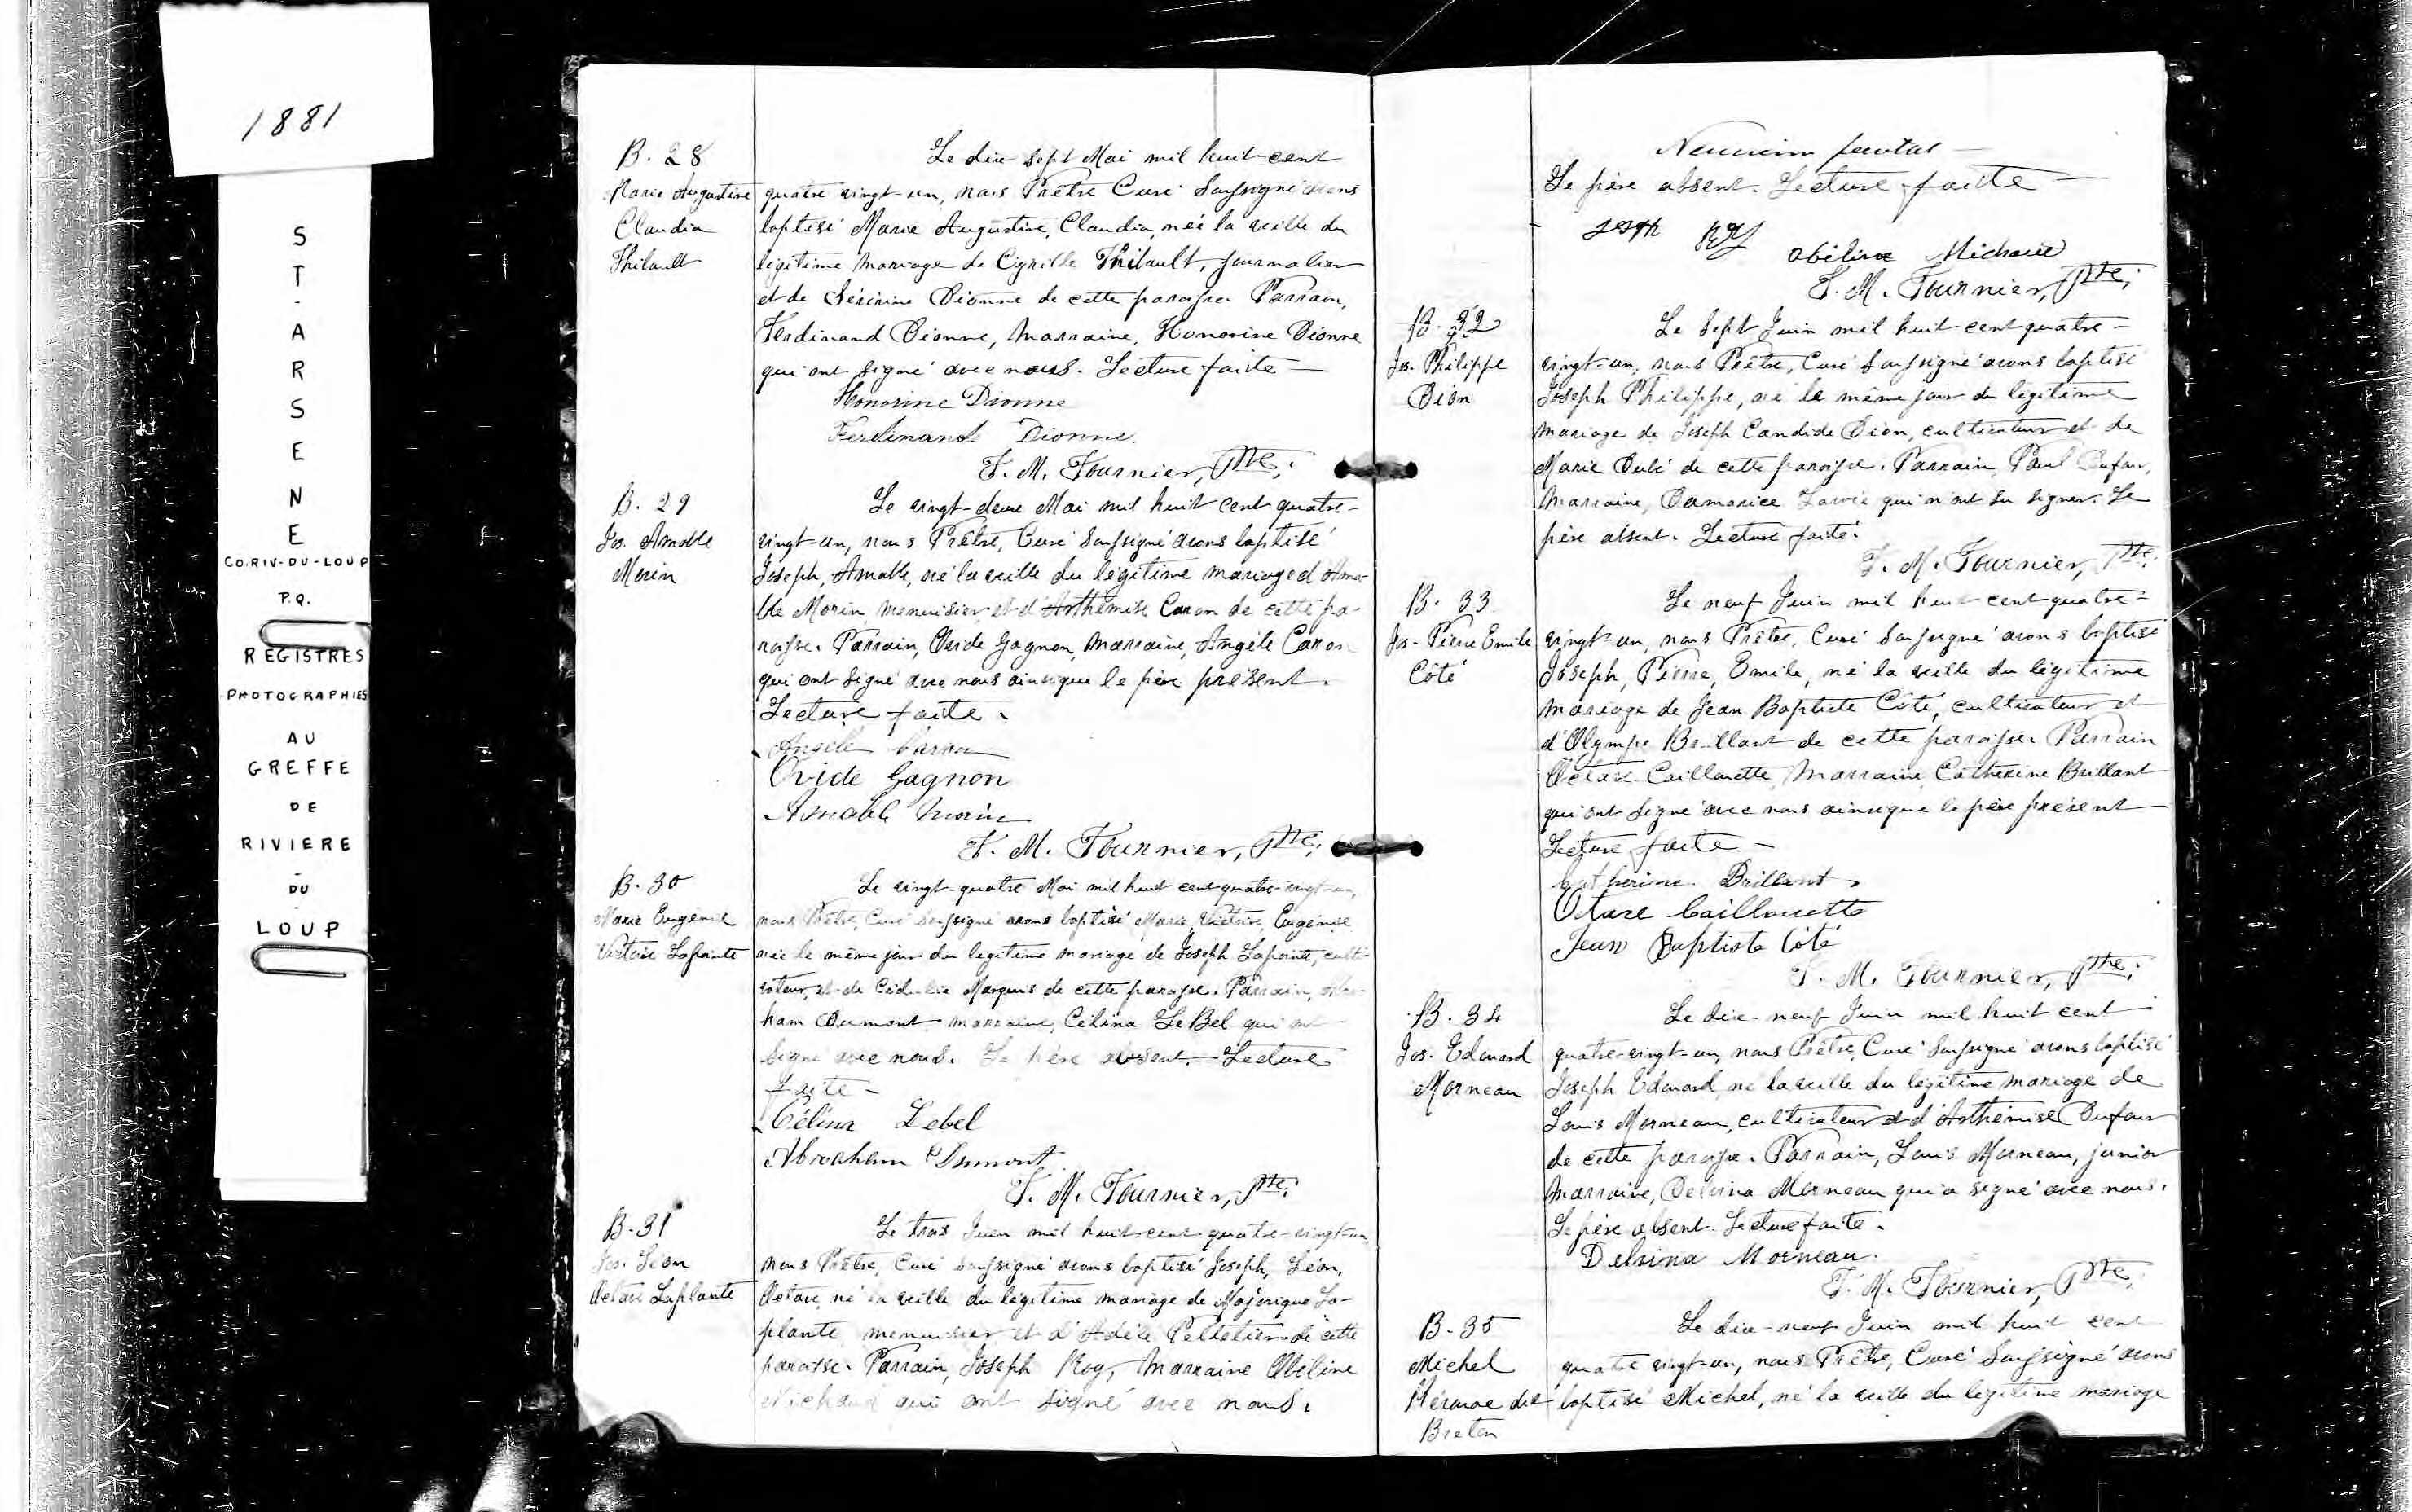 1881
S
T
-
A
R
S
E
N
E
CO. RIV-DU-LOUP
P.Q.
REGISTRES
PHOTOGRAPHIES
AU
GREFFE
DE
RIVIERE
-
DU
-
LOUP
B. 28
Marie Augustine
Claudia
Thibault
Le dix-sept Mai mil huit cent
quatre vingt-un, nous Prêtre Curé Soussigné avons
baptisé Marie Augustine, Claudia, née la veille du
légitime mariage de Cyrille Thibault, journalier
et de Séverine Dionne de cette paroisse. Parrain,
Ferdinand Dionne, Marraine, Honorine Dionne
qui ont signé avec nous. Lecture faite —
Honorine Dionne
Ferdinand Dionne
F. M. Fournier, Ptre.
B. 29
Jos. Amable
Morin
Le vingt-deux Mai mil huit cent quatre-
vingt-un, nous Prêtre, Curé Soussigné avons baptisé
Joseph, Amable, né la veille du légitime mariage d'Ama-
ble Morin, menuisier et d'Arthémise Caron de cette pa-
roisse. Parrain, Ovide Gagnon, Marraine, Angèle Caron
qui ont signé avec nous ainsi que le père présent.
Lecture faite.
Angèle Caron
Ovide Gagnon
Amable Morin
F. M. Fournier, Ptre.
B. 30
Marie Eugénie
Victoire Lapointe
Le vingt-quatre Mai mil huit cent quatre-vingt-un,
nous Prêtre, Curé Soussigné avons baptisé Marie, Victoire, Eugénie
née le même jour du légitime mariage de Joseph Lapointe, culti-
vateur, et de Marquis de cette paroisse. Parrain, Abra-
ham Dumont, marraine, Célina LeBel qui ont
signé avec nous. Le père absent. — Lecture
faite —
Célina Lebel
Abraham Dumont
F. M. Fournier, Ptre.
B. 31
Jos. Léon
Octave Laplante
Le trois Juin mil huit cent quatre-vingt-un
nous Prêtre, Curé soussigné avons baptisé Joseph, Léon,
Octave, né la veille du légitime mariage de Majorique La-
plante, menuisier et d'Adèle Pelletier de cette
paroisse. Parrain, Joseph Roy, Marraine Obéline
Michaud qui ont signé avec nous.
Le père absent. Lecture faite —
Joseph Roy
Obéline Michaud
F. M. Fournier, Ptre.
B. 32
Jos. Philippe
Dion
Le Sept Juin mil huit cent quatre-
vingt-un, nous Prêtre, Curé Soussigné avons baptisé
Joseph Philippe, né le même jour du légitime
mariage de Joseph Candide Dion, cultivateur et de
Marie Dubé de cette paroisse. Parrain, Paul Dufour,
Marraine, qui n'ont su signer. Le
père absent. Lecture faite.
F. M. Fournier, Ptre.
B. 33
Jos. Pierre Emile
Côté
Le neuf Juin mil huit cent quatre-
vingt-un, nous Prêtre, Curé Soussigné avons baptisé
Joseph, Pierre, Emile, né la veille du légitime
mariage de Jean Baptiste Côté, cultivateur et
d'Olympe Brillant de cette paroisse. Parrain
Octave Caillouette, Marraine, Catherine Brillant
qui ont signé avec nous ainsi que le père présent
Lecture faite —
Catherine Brillant
Octave Caillouette
Jean Baptiste Côté
F. M. Fournier, Ptre.
B. 34
Jos. Edouard
Morneau
Le dix-neuf Juin mil huit cent
quatre-vingt-un, nous Prêtre, Curé Soussigné avons baptisé
Joseph Edouard, né la veille du légitime mariage de
Louis Morneau, cultivateur et d'Arthémise Dufour
de cette paroisse. Parrain, Louis Morneau, junior
Marraine, Delvina Morneau qui a signé avec nous.
Le père absent. Lecture faite.
Delvina Morneau.
F. M. Fournier, Ptre.
B. 35
Michel
dit
Breton
Le dix-neuf Juin mil huit cent
quatre vingt-un, nous Prêtre, Curé Soussigné avons
baptisé Michel, né la veille du légitime mariage